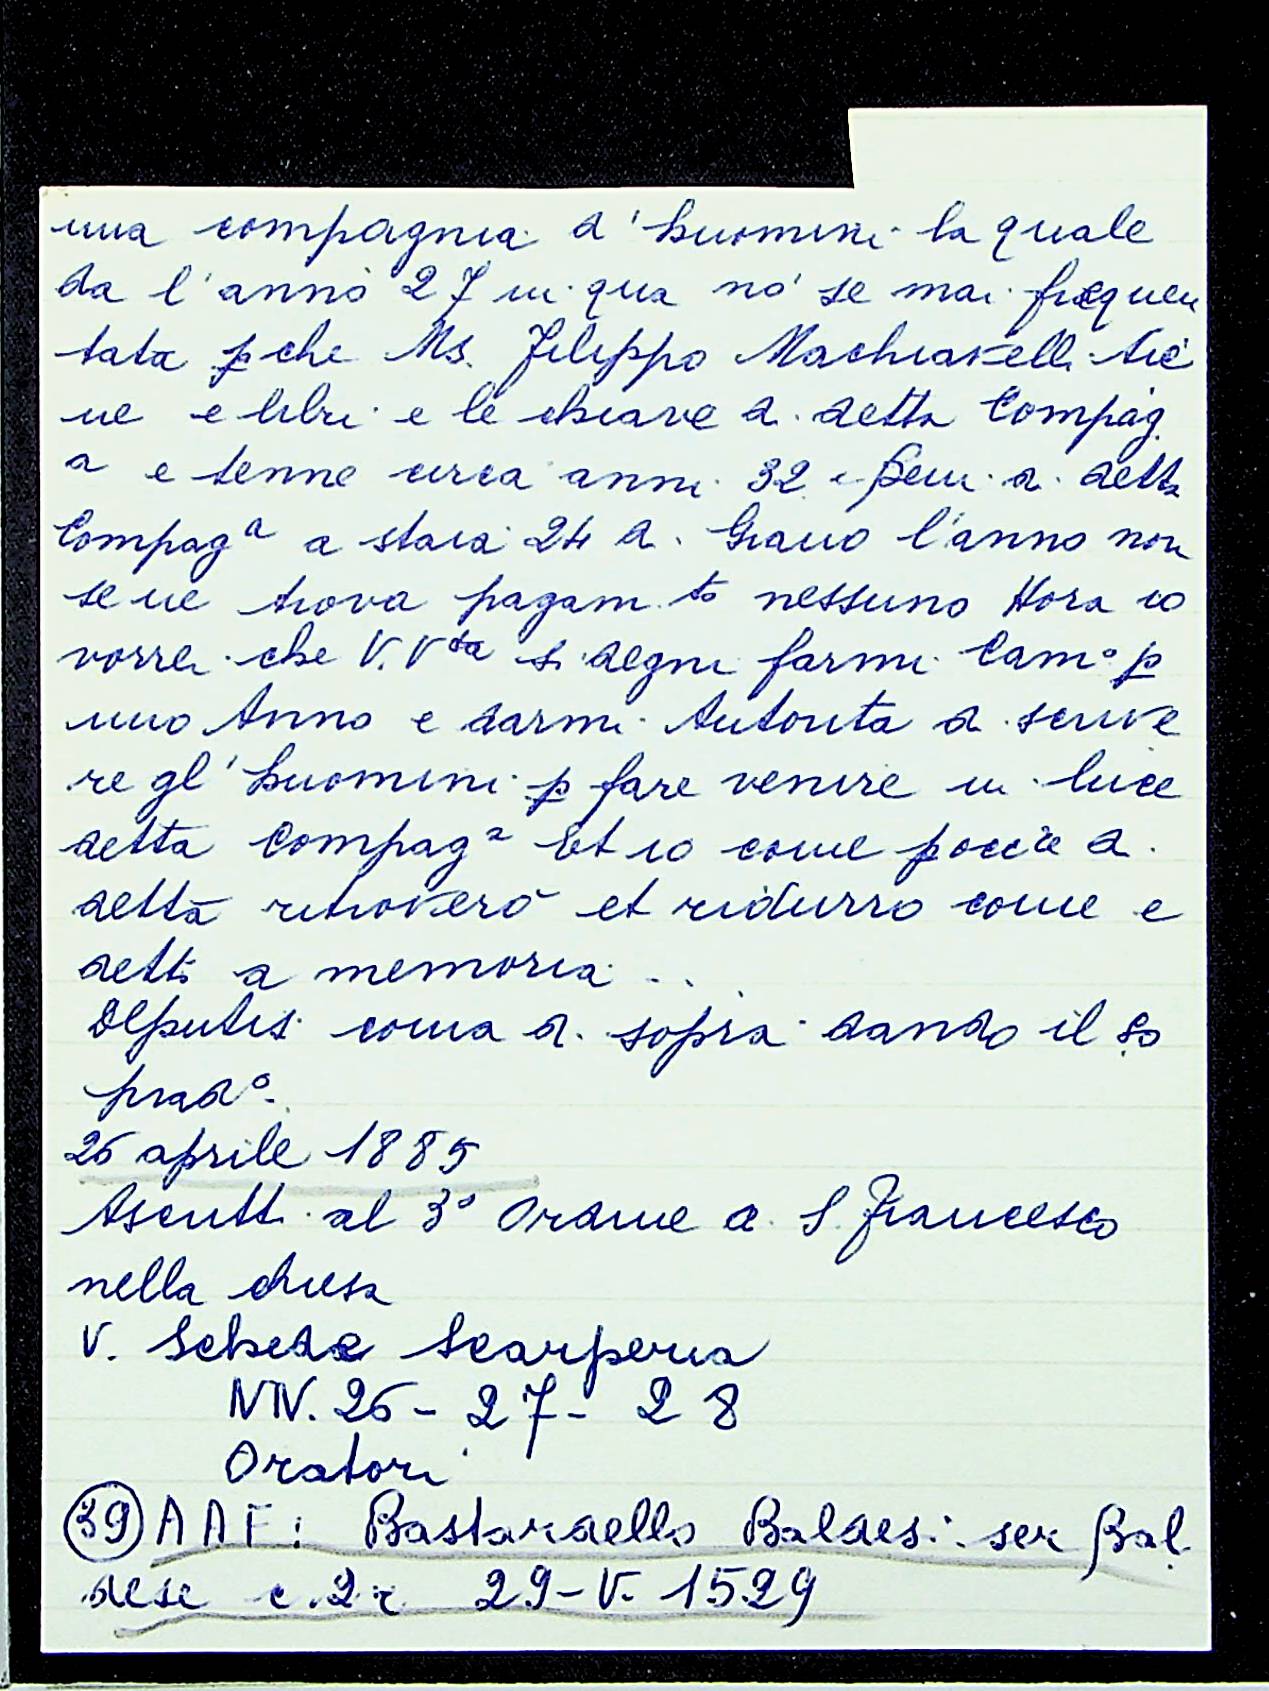 una compagnia d'huomini la quale
da l'anno 27 in qua nō se mai frequen
tata p che Ms. Filippo Machiavelli tiē
ne e libri e le chiave di detta Compag.
a e tenne circa anni 32 e beni di detta
Compagª a staia 24 di Grano l'anno non
se ne trova pagam.to nessuno Hora io
vorrei che V. V sia si degni farmi Camº p
uno Anno e darmi Autorita di scrive
re gl'huomini p fare venire in luce
detta Compagª Et io come di
detta ritroverò et ridurro come e
detto a memoria ...
Deputis come di sopra dando il so
pradº.
26 aprile 1885
Ascritti al 3º Ordine di S. Francesco
nella chiesa
V. Schede Scarperia
NN. 26 - 27 - 28
Oratori
39 A A F: Bastardello Baldesi: ser Bal
dese c. 2 r. 29-V-1529